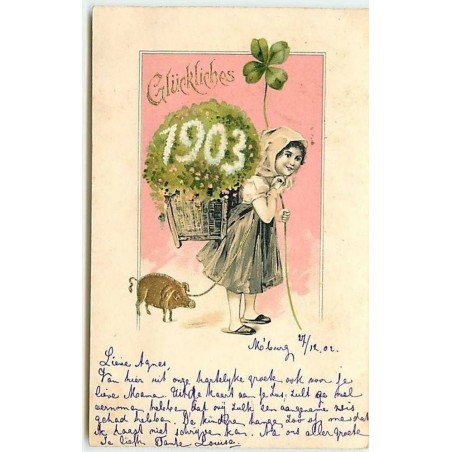 Glückliches
1903
M'burg 27/12.02.
Lieve Agnes!
Van hier uit onze hartelijke groete ook voor je
lieve Mama. Uit de kaart aan je Zus, zult ge wel
vernomen hebben dat wij zulk een aangename reis
gehad hebben. De kinderen zoo
ik niet schrijven kan. Na ons aller groete
Je liefh. Tante Louise.